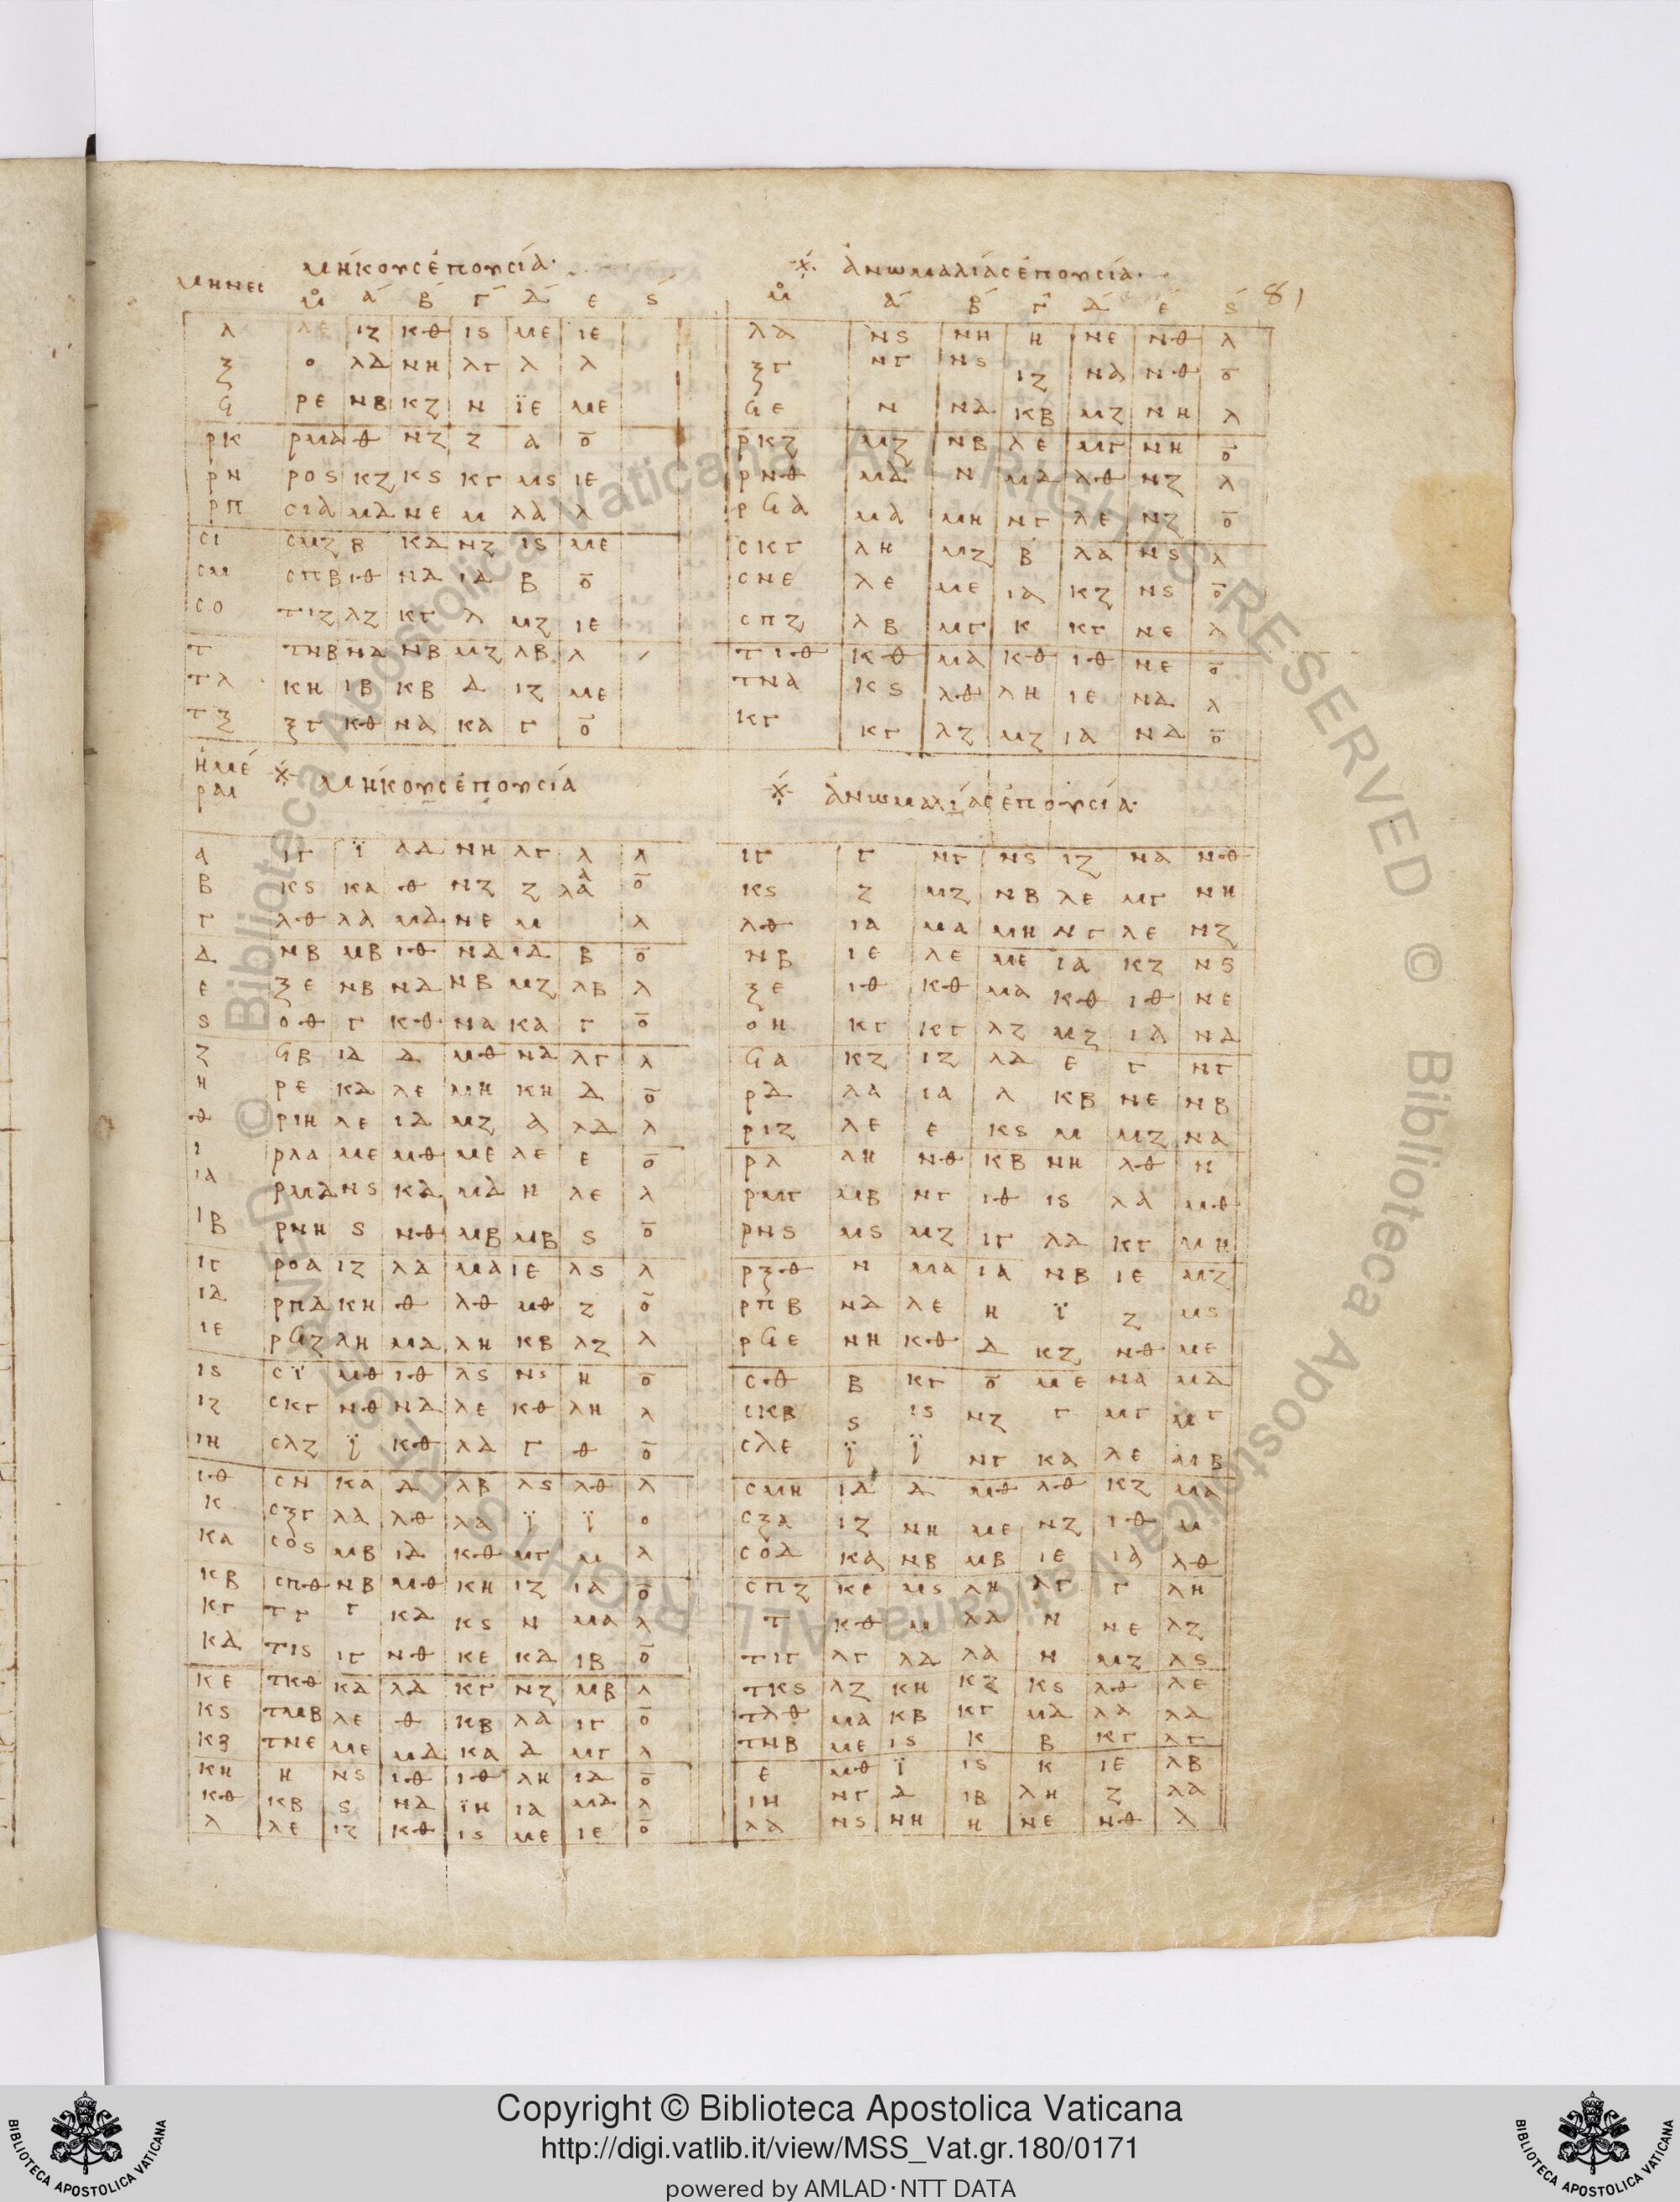 μηνες μήκους ἐπουσία · ※ ἀνωμαλίας ἐπουσία ·
μ̊ α β γ δ ε ς μ̊ α β γ δ ε ς 81
λ λε ιζ κθ ις με ιε λα νς νη η νε νθ λ
ξ ο λδ νη λγ λ λ ξγ νγ νς ιζ να νθ ō
ϙ ρε νβ κζ ν ϊε με ϙε ν νδ κβ μζ νη λ
ρκ ρμα θ νζ ζ α ō ρκζ μζ νβ λε μγ νη ō
ρν ρος κζ κς κγ μς ιε ρνθ μδ ν μδ λθ νζ λ
ρπ σια μδ νε μ λα λ ρϙα μα μη νγ λε νζ ō
σι σμζ β κδ νζ ις με σκγ λη μζ β λα νς λ
σμ σπβ ιθ νδ ιδ β ō σνε λε με ια κζ νς ō
σο τιζ λζ κγ λ μζ ιε σπζ λβ μγ κ κγ νε λ
τ τνβ νδ νβ μζ λβ λ τιθ κθ μα κθ ιθ νε ō
τλ κη ιβ κβ δ ιζ με τνα κς λθ λη ιε νδ λ
τξ ξγ κθ να κα γ ō κγ κγ λζ μζ ια νδ ō
ἡμέ
ραι ※ μήκους ἐπουσία ※ ἀνωμαλίας ἐπουσία ·
α ιγ ϊ λδ νη λγ λ λ ιγ γ νγ νς ιζ να νθ
β κς κα θ νζ ζ λα α ō κς ζ μζ νβ λε μγ νη
γ λθ λα μδ νε μ λ λθ ια μα μη νγ λε νζ
δ νβ μβ ιθ νδ ιδ β ō νβ ιε λε με ια κζ νς
ε ξε νβ νδ νβ μζ λβ λ ξε ιθ κθ μα κθ ιθ νε
ς οθ γ κθ να κα γ ō οη κγ κγ λζ μζ ια νδ
ζ ϙβ ιδ δ μθ νδ λγ λ ϙα κζ ιζ λδ ε γ νγ
η ρε κδ λε μη κη δ ō ρδ λα ια λ κβ νε νβ
θ ριη λε ιδ μζ α λδ λ ριζ λε ε κς μ μζ να
ι ρλα με μθ με λε ε ō ρλ λη νθ κβ νη λθ ν
ια ρμδ νς κδ μδ η λε λ ρμγ μβ νγ ιθ ις λα μθ
ιβ ρνη ς νθ μβ μβ ς ō ρνς μς μζ ιγ λδ κγ μη
ιγ ροα ιζ λδ μα ιε λς λ ρξθ ν μα ια νβ ιε μζ
ιδ ρπδ κη θ λθ μθ ζ ō ρπβ νδ λε η ϊ ζ μς
ιε ρϙζ λη μδ λη κβ λζ λ ρϙε νη κθ δ κζ νθ με
ις σϊ μθ ιθ λς νς η ō σθ β κγ ō με να μδ
ιζ σκγ νθ νδ λε κθ λη λ σκβ ς ις νζ γ μγ μγ
ιη σλζ ϊ κθ λδ γ θ ō σλε ϊ ϊ νγ κα λε μβ
ιθ σν κα δ λβ λς λθ λ σμη ιδ δ μθ λθ κζ μα
κ σξγ λα λθ λα ϊ ϊ ο σξα ιζ νη με νζ ιθ μ
κα σος μβ ιδ κθ μγ μ λ σοδ κα νβ μβ ιε ια λθ
κβ σπθ νβ μθ κη ιζ ια ō σπζ κε μς λη λγ γ λη
κγ τγ γ κδ κς ν μα λ τ κθ μ λδ ν νε λζ
κδ τις ιγ νθ κε κδ ιβ ō τιγ λγ λδ λα η μζ λς
κε τκθ κδ λδ κγ νζ μβ λ τκς λζ κη κζ κς λθ λε
κς τμβ λε θ κβ λα ιγ ō τλθ μα κβ κγ μδ λα λδ
κζ τνε με μδ κα δ μγ λ τνβ με ις κ β κγ λγ
κη η νς ιθ ιθ λη ιδ ō ε μθ ϊ ις κ ιε λβ
κθ κβ ς νδ ϊη ια μδ λ ιη νγ δ ιβ λη ζ λα
λ λε ιζ κθ ις με ιε ō λα νς νη η νε νθ λ
© Biblioteca Apostolica Vaticana ALL RIGHTS RESERVED © Biblioteca Apostolica Vaticana ALL RIGHTS RESERVED
Copyright © Biblioteca Apostolica Vaticana
http://digi.vatlib.it/view/MSS_Vat.gr.180/0171
powered by AMLAD · NTT DATA
BIBLIOTECA APOSTOLICA VATICANA
BIBLIOTECA APOSTOLICA VATICANA